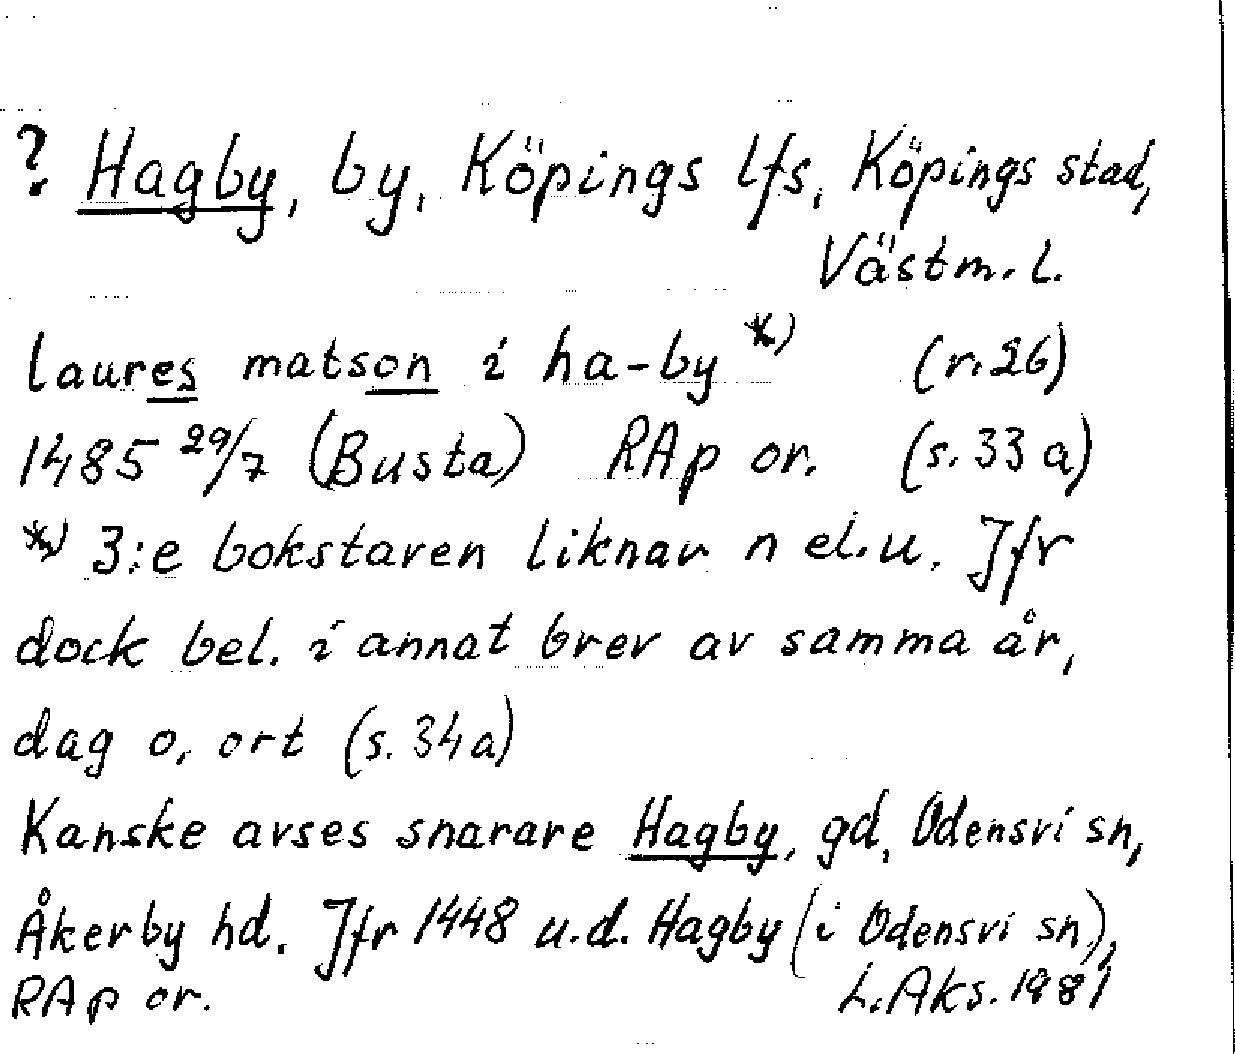 ? Hagby, by, Köpings lfs, Köpings stad,
Västm. l.
laures matson i ha-by *) (r. 26)
1485 29/7 (Busta) RAp or. (s. 33 a)
*) 3:e bokstaven liknar n el. u. Jfr
dock bel. i annat brev av samma år,
dag o. ort (s. 34a)
Kanske avses snarare Hagby, gd, Odensvi sn,
Åkerby hd. Jfr 1448 u.d. Hagby (i Odensvi sn),
RAp or. L. Aks. 1981